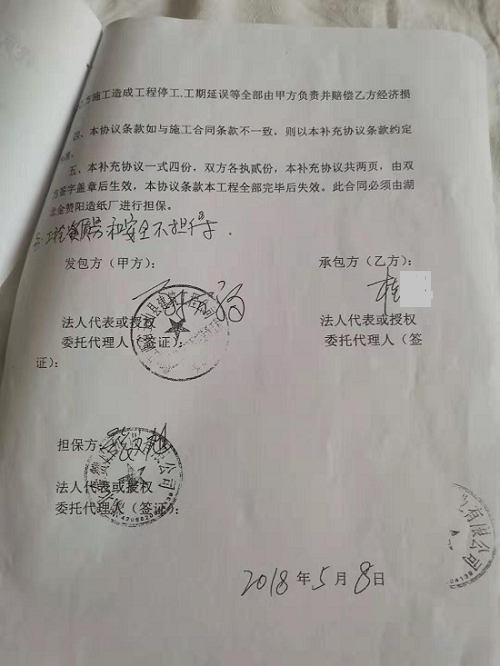 方施工造成工程停工.工期延误等全部由甲方负责并赔偿乙方经济损
四、本协议条款如与施工合同条款不一致，则以本补充协议条款约定
五、本补充协议一式四份，双方各执贰份，本补充协议共两页，由双
签字盖章后生效，本协议条款本工程全部完毕后失效。此合同必须由湖
金赞阳造纸厂进行担保。
和安全不担
发包方（甲方）：
承包方（乙方）：
桂
法人代表或授权
法人代表或授权
委托代理人（签证）：
委托代理人（签
证）：
担保方：
法人代表或授权
委托代理人（签证）：
有限公司
2018年5月8日